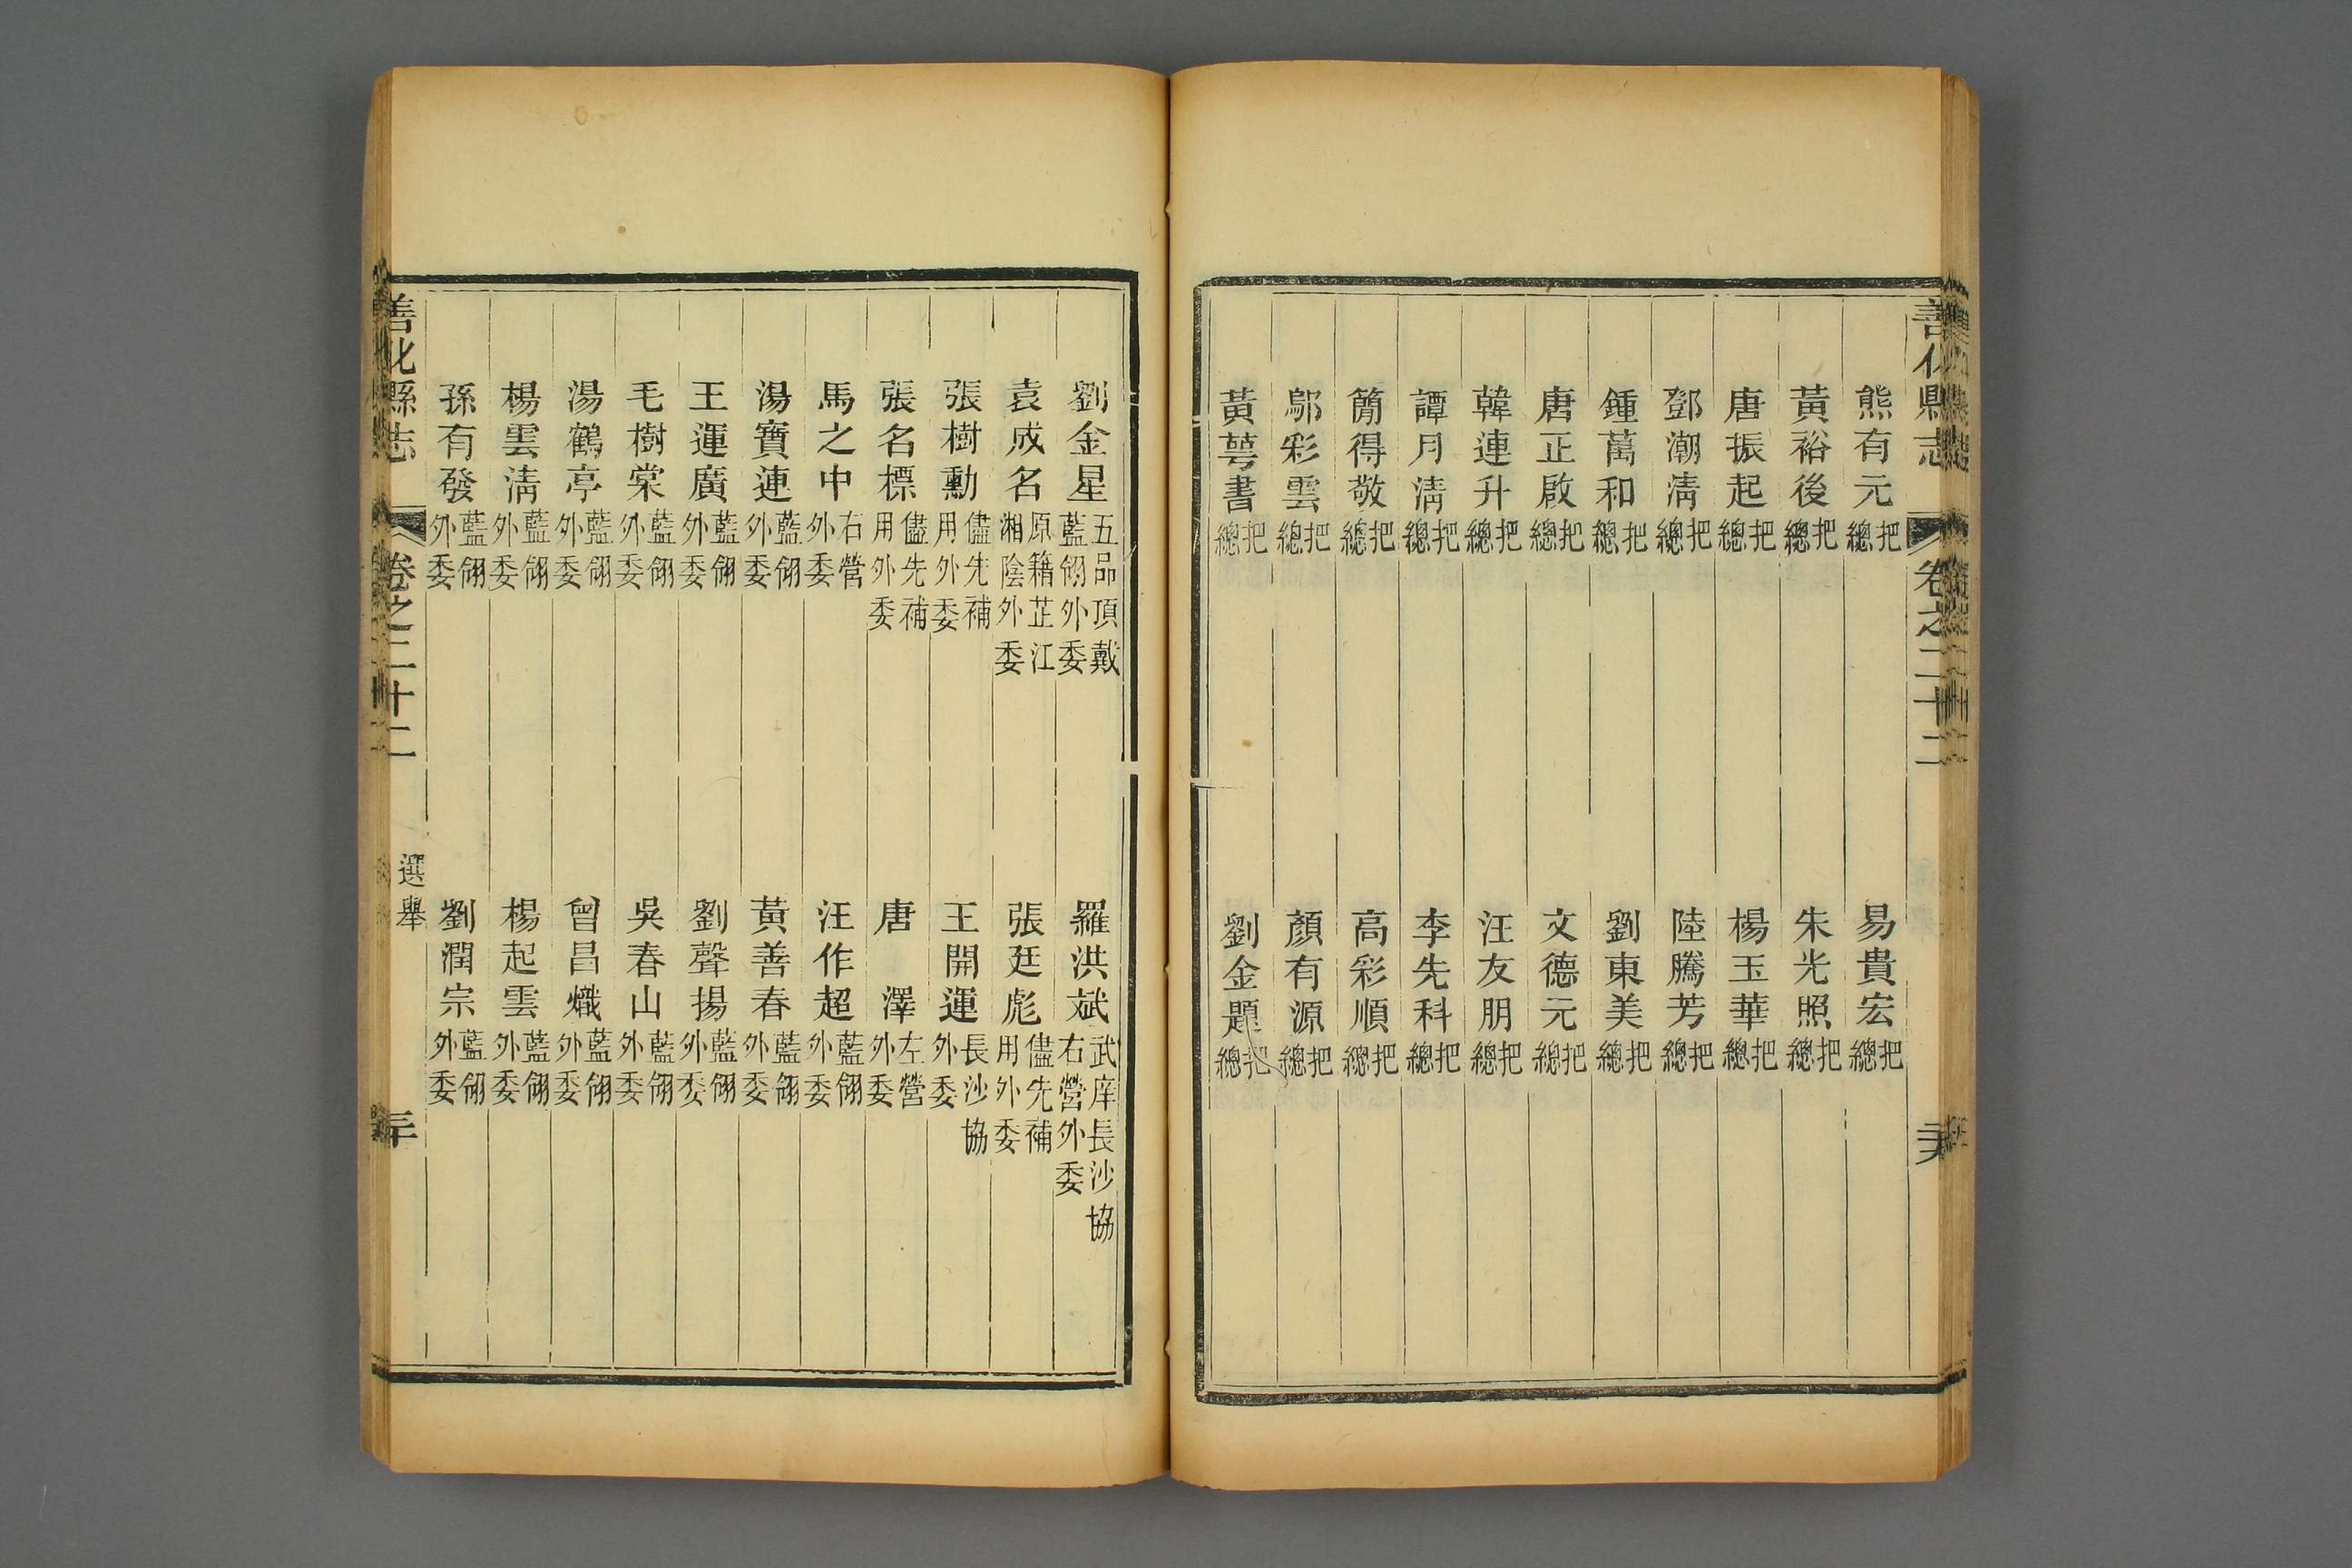 善化縣志 卷之二十二
熊有元 把總 易貴宏 把總
黃裕後 把總 朱光照 把總
唐振起 把總 楊玉華 把總
鄧潮清 把總 陸騰芳 把總
鍾萬和 把總 劉東美 把總
唐正啟 把總 文德元 把總
韓連升 把總 汪友朋 把總
譚月清 把總 李先科 把總
簡得敬 把總 高彩順 把總
鄔彩雲 把總 顏有源 把總
黃萼書 把總 劉金題 把總
劉金星 五品頂戴藍翎外委 羅洪斌 武庠長沙協右營外委
袁成名 原籍芷江湘陰外委 張廷彪 儘先補用外委
張樹勳 儘先補用外委 王開運 長沙協外委
張名標 儘先補用外委 唐澤 左營外委
馬之中 右營外委 汪作超 藍翎外委
湯寶連 藍翎外委 黃善春 藍翎外委
王運廣 藍翎外委 劉聲揚 藍翎外委
毛樹棠 藍翎外委 吳春山 藍翎外委
湯鶴亭 藍翎外委 曾昌熾 藍翎外委
楊雲清 藍翎外委 楊起雲 藍翎外委
孫有發 藍翎外委 劉潤宗 藍翎外委
善化縣志 卷之二十二 選舉